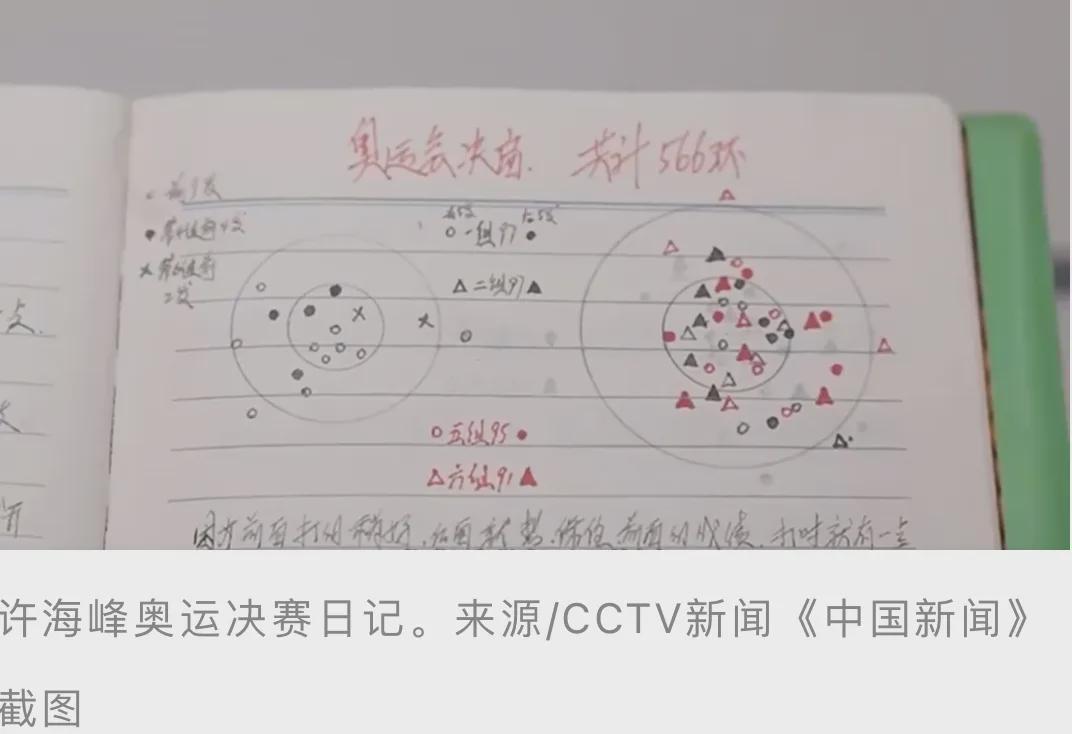 奥运会决赛. 共计566环
前5发 后5发
○一组97●
△二组97▲
○五组95●
△六组91▲
因为前面打的 好,后面就想保住前面的成绩,打时就有一点
许海峰奥运决赛日记。来源/CCTV新闻《中国新闻》
截图